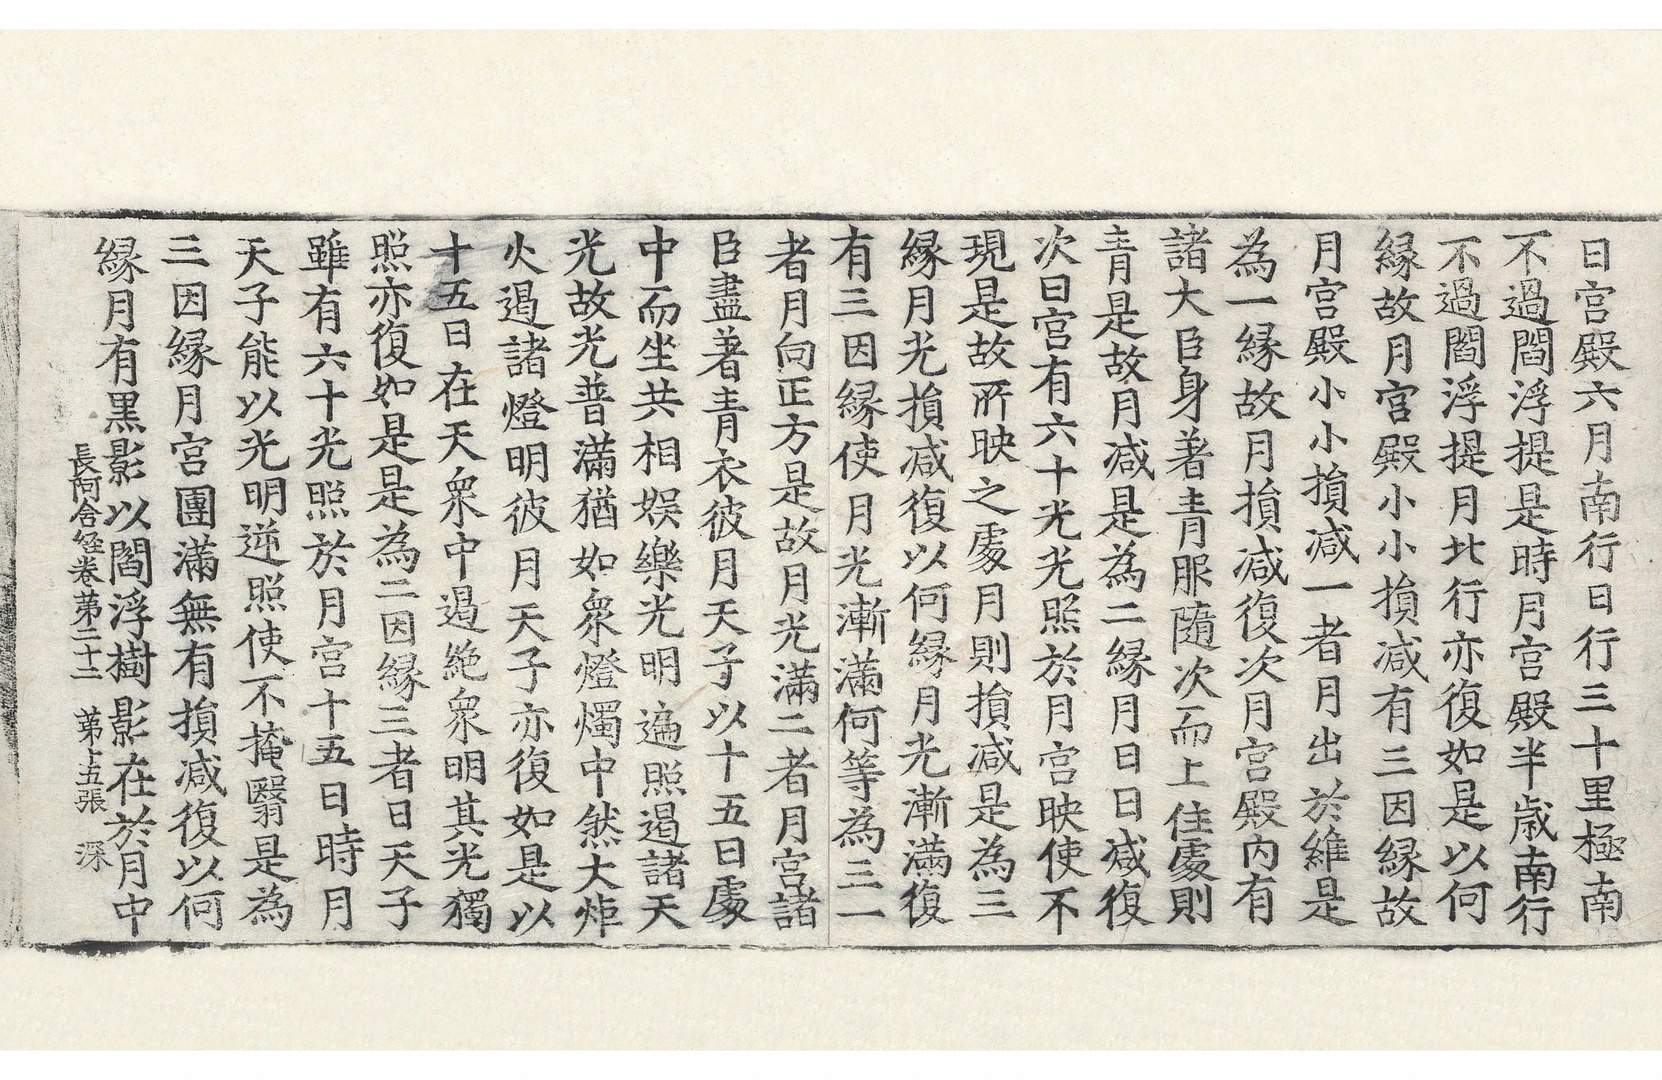 日宮殿六月南行日行三十里極南
不過閻浮提是時月宮殿半歲南行
不過閻浮提月北行亦復如是以何
緣故月宮殿小小損減有三因緣故
月宮殿小小損減一者月出於維是
為一緣故月損減復次月宮殿內有
諸大臣身著青服隨次而上住處則
青是故月減是為二緣月日日減復
次日宮有六十光光照於月宮映使不
現是故所映之處月則損減是為三
緣月光損減復以何緣月光漸滿復
有三因緣使月光漸滿何等為三一
者月向正方是故月光滿二者月宮諸
臣盡著青衣彼月天子以十五日處
中而坐共相娛樂光明遍照遏諸天
光故光普滿猶如眾燈燭中燃大炬
火遏諸燈明彼月天子亦復如是以
十五日在天眾中遏絕眾明其光獨
照亦復如是是為二因緣三者日天子
雖有六十光照於月宮十五日時月
天子能以光明逆照使不掩翳是為
三因緣月宮團滿無有損減復以何
緣月有黑影以閻浮樹影在於月中
長阿含經卷第二十二　第十五張　深